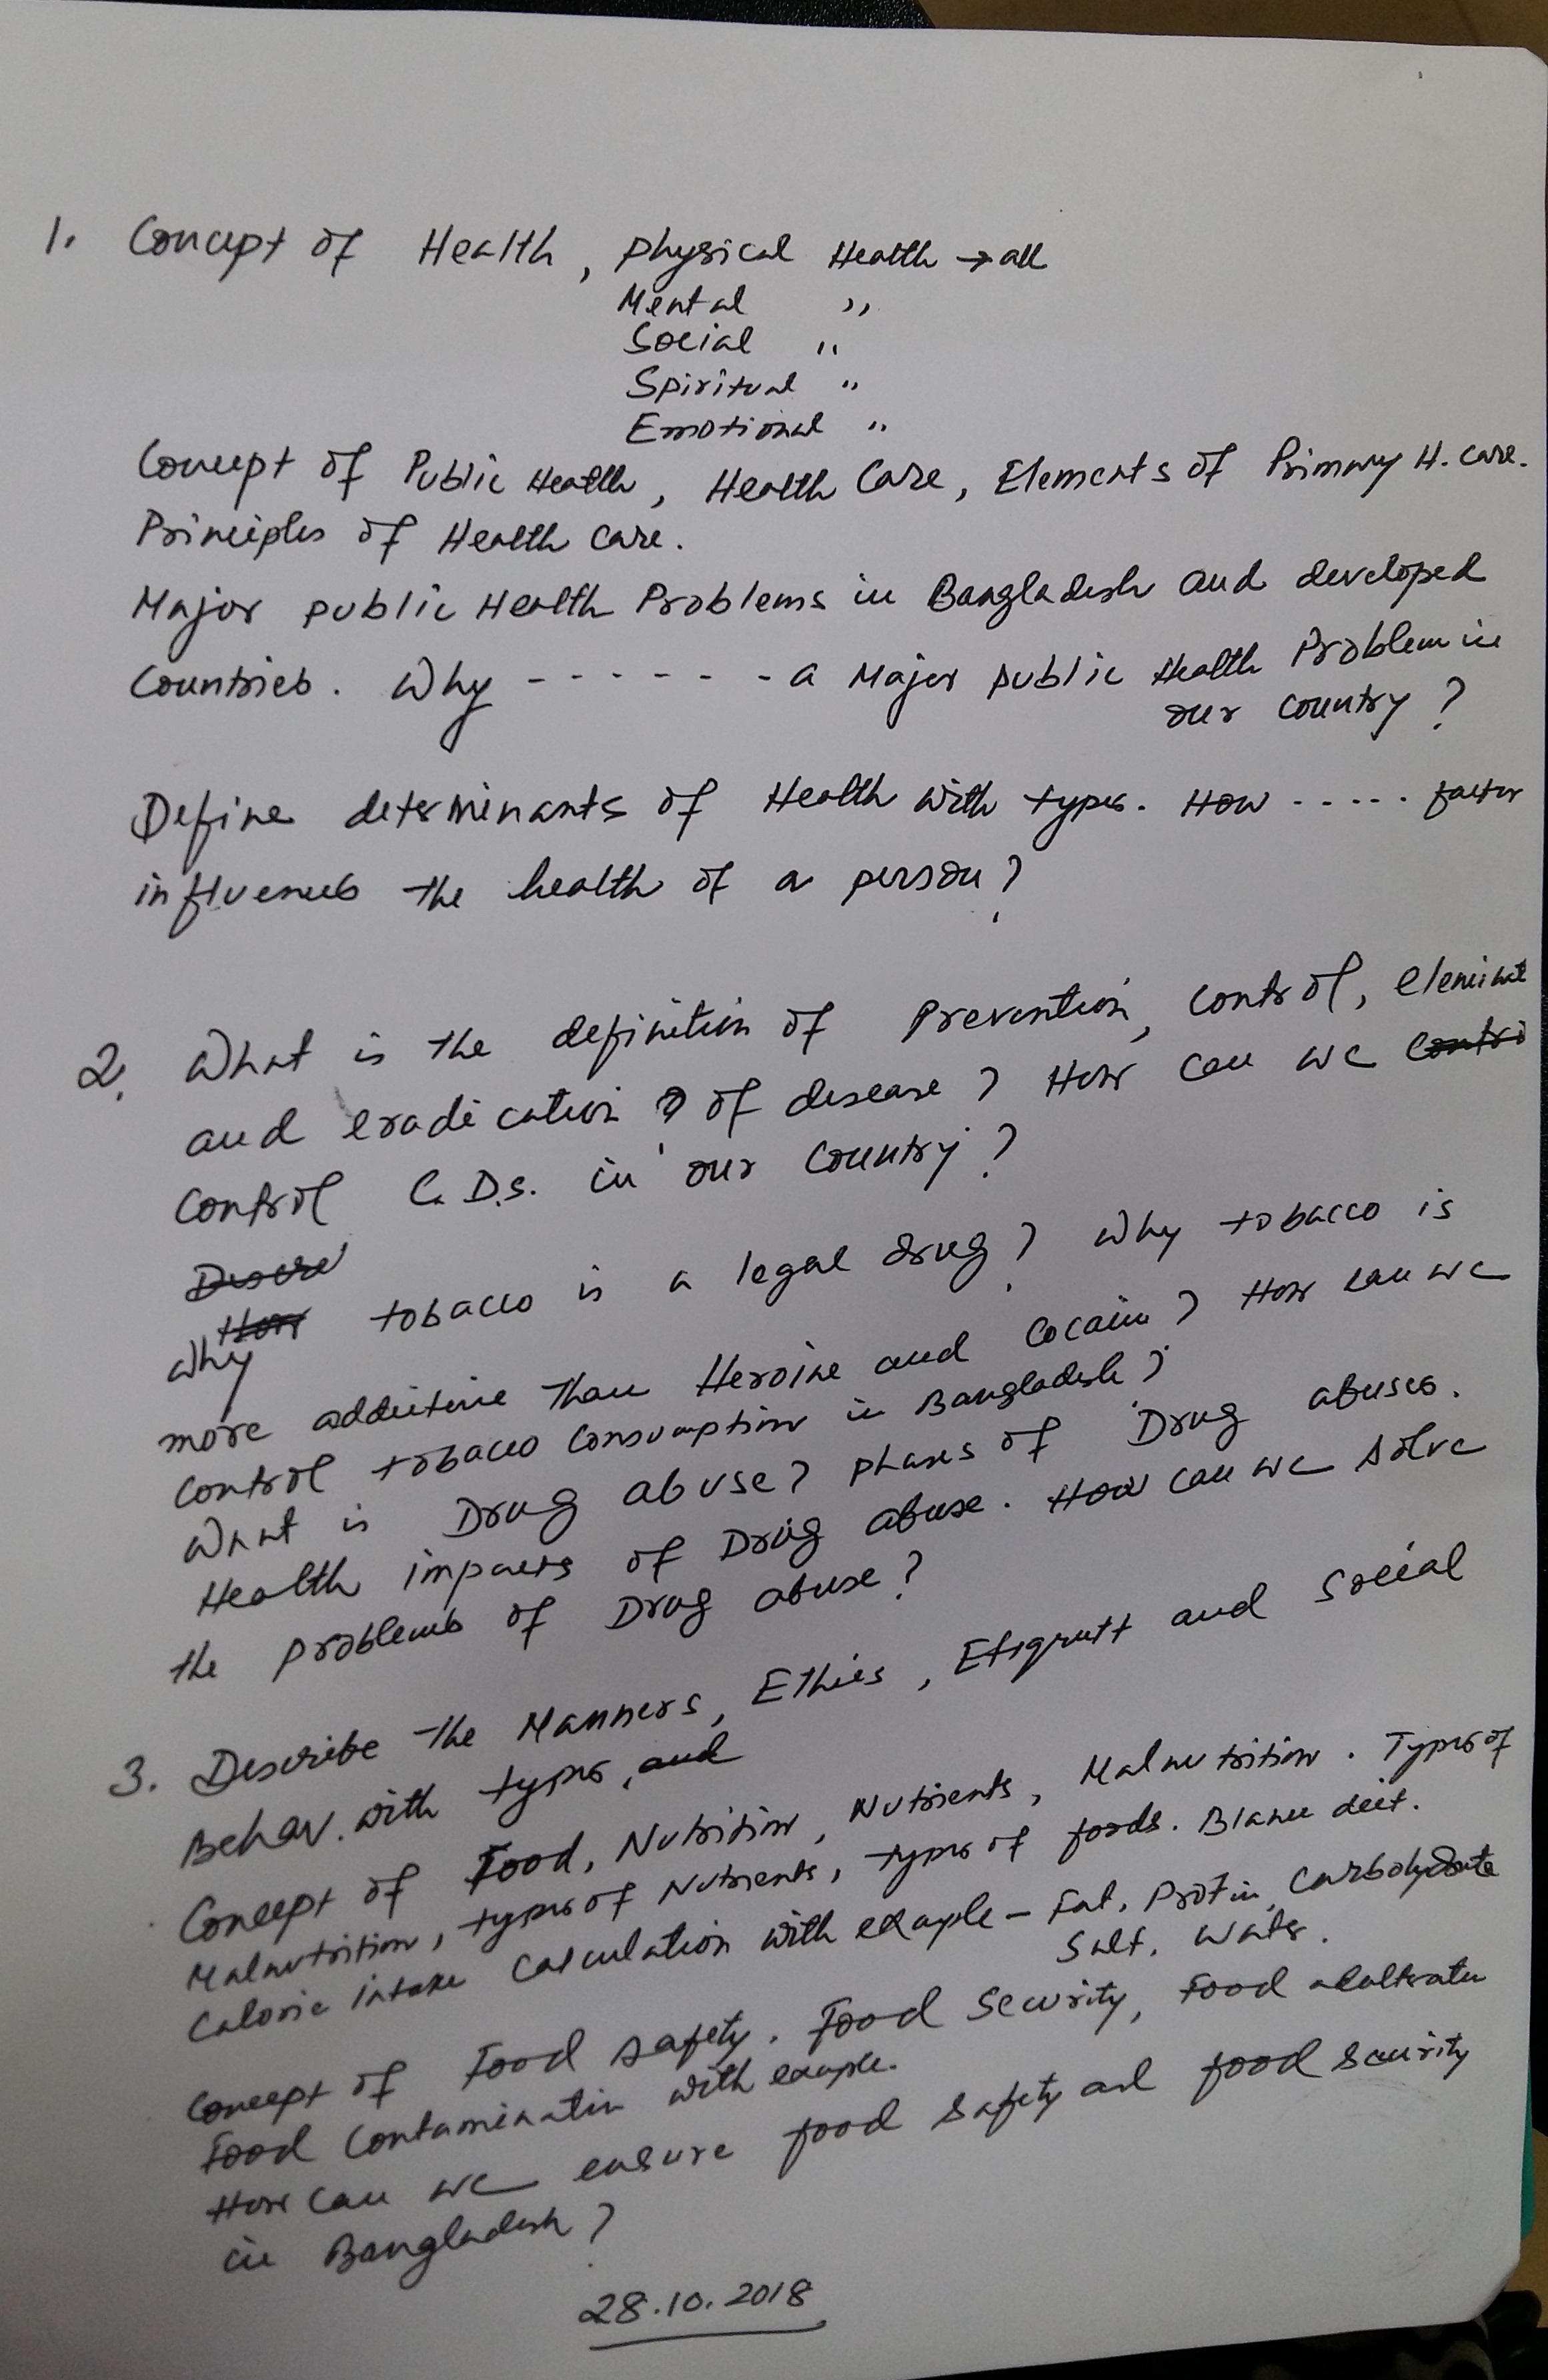 1. Concept of Health, Physical Health → all
Mental ,,
Social ,,
Spiritual ,,
Emotional ,,
Concept of Public Health, Health Care, Elements of Primary H. Care.
Principles of Health Care.
Major public Health Problems in Bangladesh and developed
Countries. Why - - - - - - - a Major public Health Problem in
our country ?
Define determinants of Health with types. How - - - - - factor
influences the health of a person ?
2. What is the definition of Prevention, Control, eleminat
and eradication ? of disease ? How can we contro
control C.D.s. in our country ?
Descre
Why How tobacco is a legal drug ? Why tobacco is
more addictive than Heroine and Cocain ? How can we
control tobacco consumption in Bangladesh ?
What is Drug abuse ? phases of Drug abuses.
Health impacts of Drug abuse. How can we solve
the problems of Drug abuse ?
3. Describe the Manners, Ethics, Etiquett and Social
Behav. with types, and
Concept of Food, Nutrition, Nutrients, Malnutrition. Types of
Malnutrition, types of Nutrients, types of foods. Blance deit.
Calorie intake calculation with exaple - Fat, Protin, Carbohydrate
Salt, Water.
Concept of Food safety. Food Security, Food adultratin
Food Contaminatin with exaple.
How can we ensure food safety and food security
in Bangladesh ?
28.10.2018